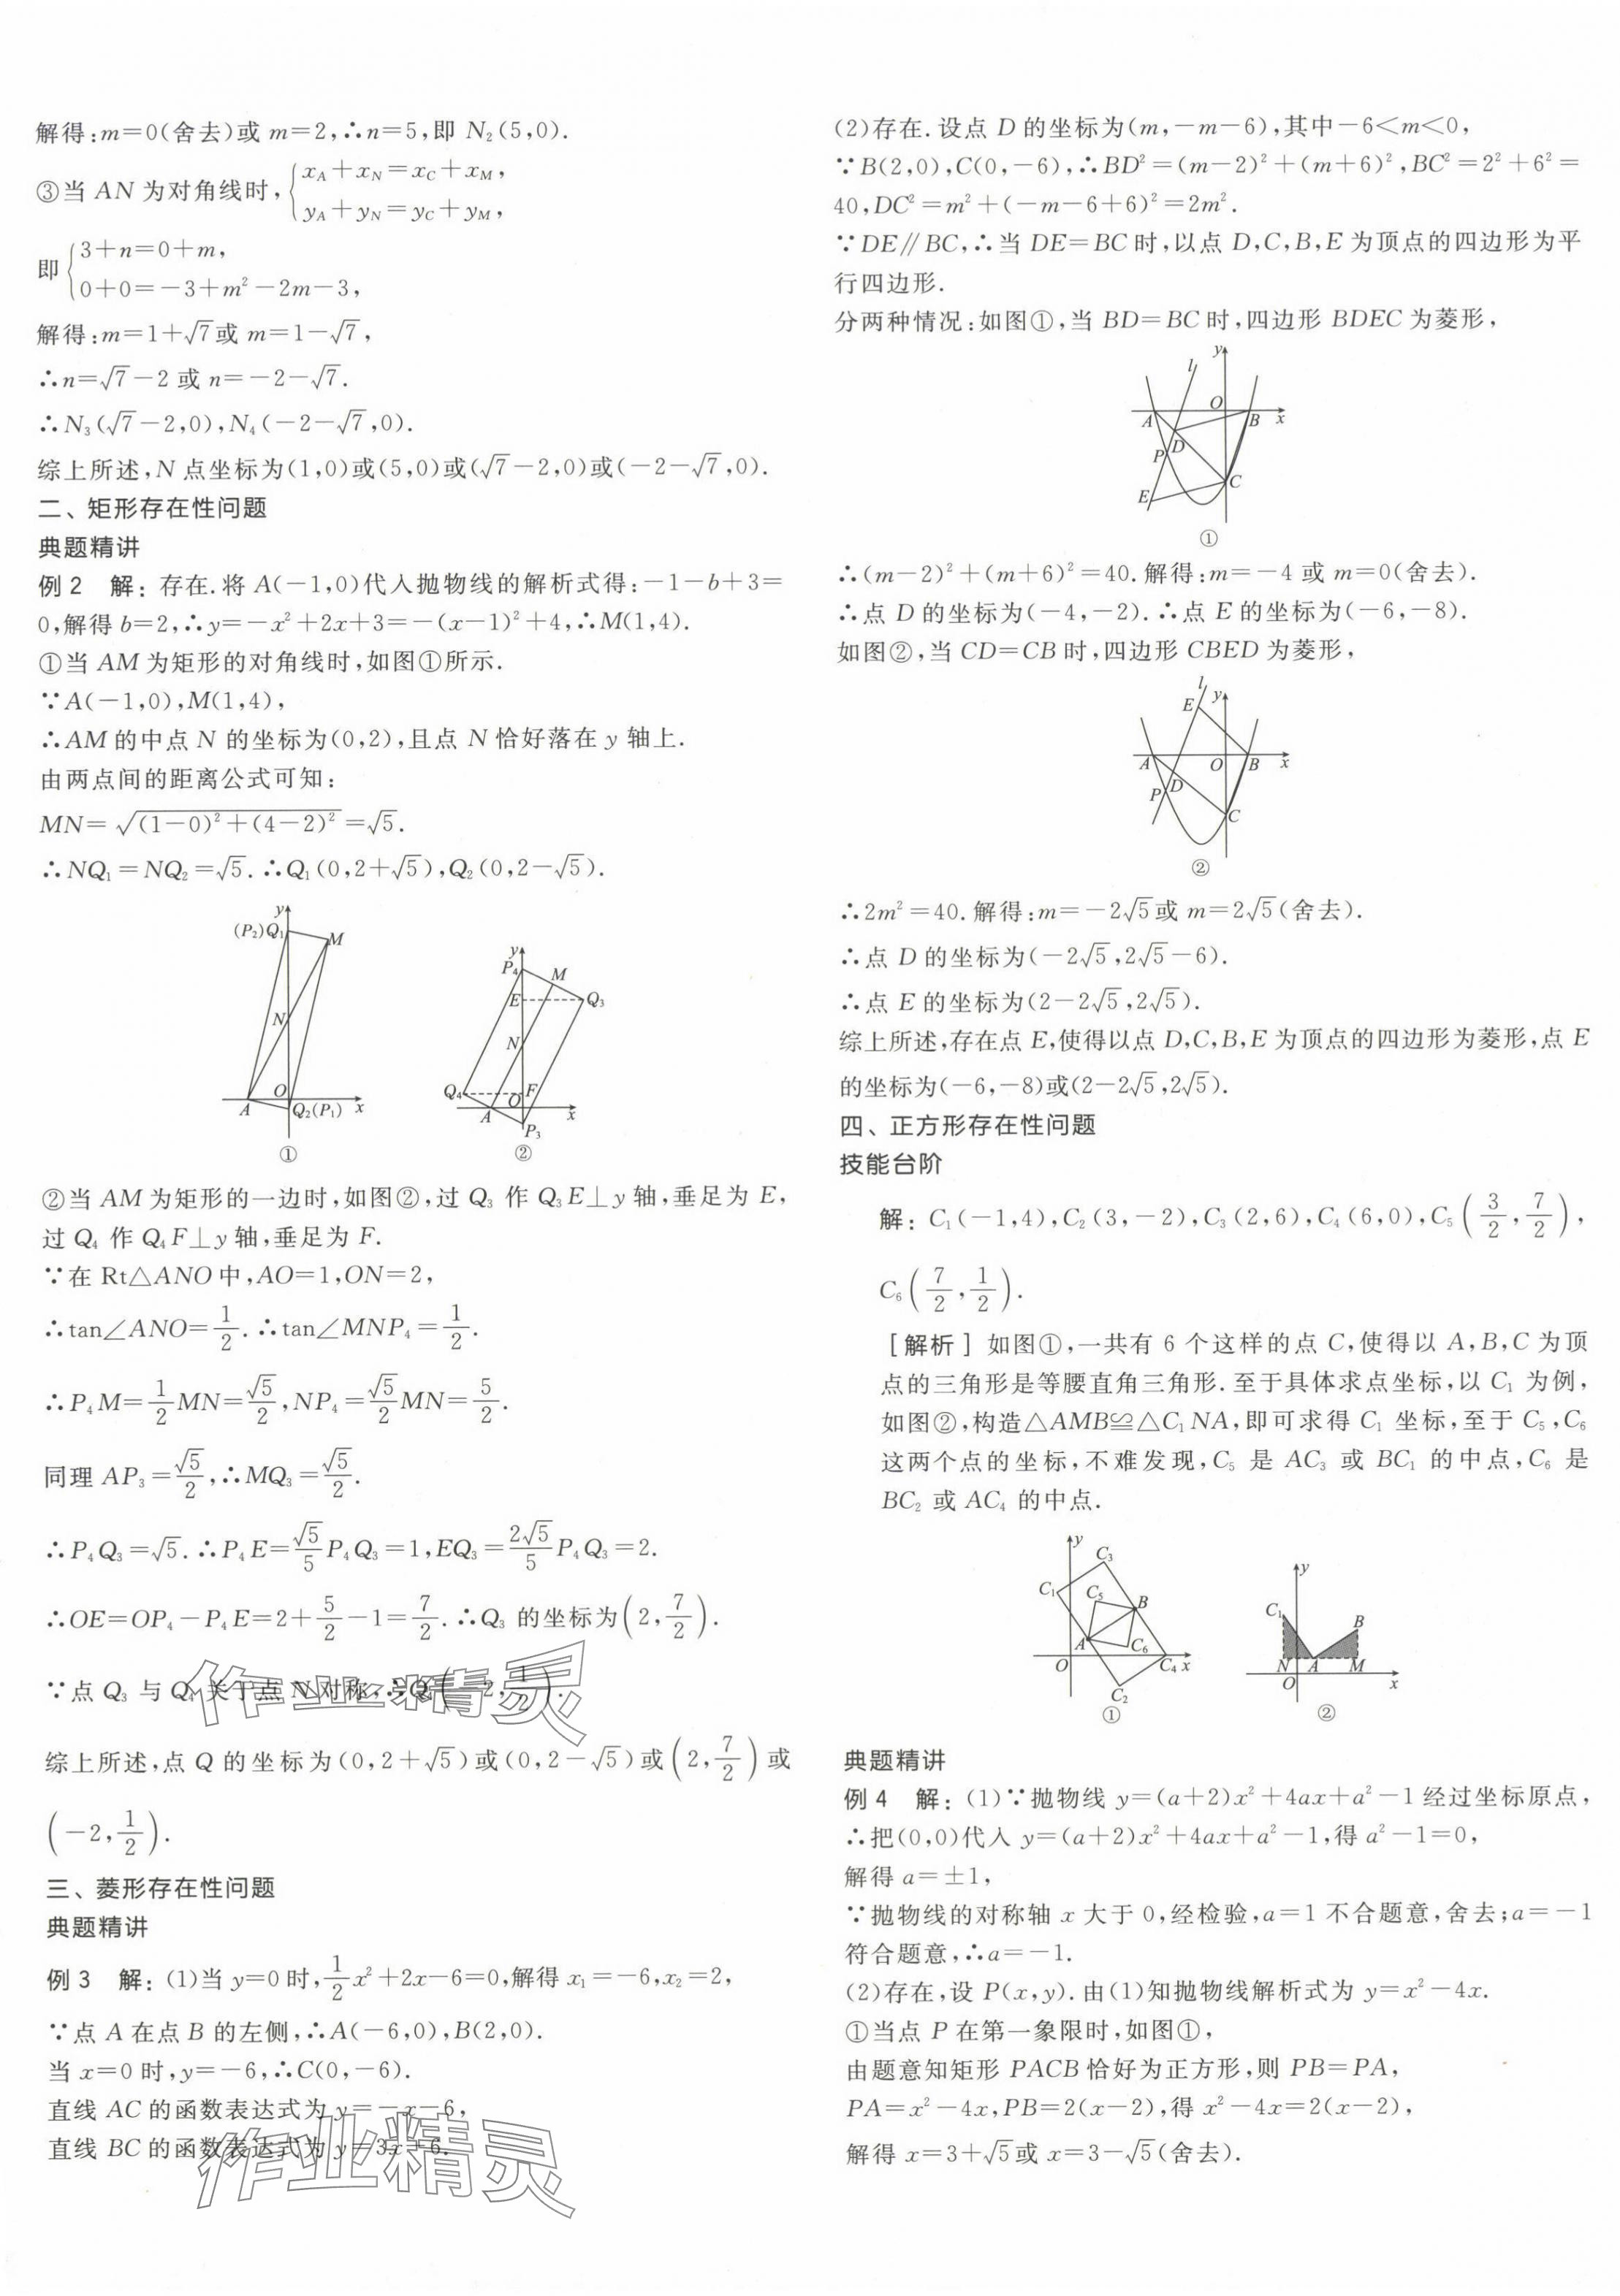 解得:m=0(舍去)或 m=2,∴n=5,即 N₂(5,0).
③当 AN 为对角线时,{x_A+x_N=x_C+x_M,
y_A+y_N=y_C+y_M,
即{3+n=0+m,
0+0=-3+m²-2m-3,
解得:m=1+√7或 m=1-√7,
∴n=√7-2 或 n=-2-√7.
∴N₃(√7-2,0),N₄(-2-√7,0).
综上所述,N 点坐标为(1,0)或(5,0)或(√7-2,0)或(-2-√7,0).
二、矩形存在性问题
典题精讲
例 2 解:存在.将 A(-1,0)代入抛物线的解析式得:-1-b+3=
0,解得 b=2,∴y=-x²+2x+3=-(x-1)²+4,∴M(1,4).
①当 AM 为矩形的对角线时,如图①所示.
∵A(-1,0),M(1,4),
∴AM 的中点 N 的坐标为(0,2),且点 N 恰好落在 y 轴上.
由两点间的距离公式可知:
MN=√((1-0)²+(4-2)²)=√5.
∴NQ₁=NQ₂=√5.∴Q₁(0,2+√5),Q₂(0,2-√5).
y
(P₂)Q₁
M
N
O
A
Q₂(P₁)
x
①
y
P₄
M
E
Q₃
N
Q₄
F
O
A
x
P₃
②
②当 AM 为矩形的一边时,如图②,过 Q₃ 作 Q₃E⊥y 轴,垂足为 E,
过 Q₄ 作 Q₄F⊥y 轴,垂足为 F.
∵在 Rt△ANO 中,AO=1,ON=2,
∴tan∠ANO=1/2.∴tan∠MNP₄=1/2.
∴P₄M=1/2MN=√5/2,NP₄=√5/2MN=5/2.
同理 AP₃=√5/2,∴MQ₃=√5/2.
∴P₄Q₃=√5.∴P₄E=√5/5P₄Q₃=1,EQ₃=2√5/5P₄Q₃=2.
∴OE=OP₄-P₄E=2+5/2-1=7/2.∴Q₃ 的坐标为(2,7/2).
∵点 Q₃ 与 Q₄ 关于点 N 对称,∴Q₄(-2,1/2).
综上所述,点 Q 的坐标为(0,2+√5)或(0,2-√5)或(2,7/2)或
(-2,1/2).
三、菱形存在性问题
典题精讲
例 3 解:(1)当 y=0 时,1/2x²+2x-6=0,解得 x₁=-6,x₂=2,
∵点 A 在点 B 的左侧,∴A(-6,0),B(2,0).
当 x=0 时,y=-6,∴C(0,-6).
直线 AC 的函数表达式为 y=-x-6,
直线 BC 的函数表达式为 y=3x-6.
作业精灵
作业精灵
(2)存在.设点 D 的坐标为(m,-m-6),其中-6<m<0,
∵B(2,0),C(0,-6),∴BD²=(m-2)²+(m+6)²,BC²=2²+6²=
40,DC²=m²+(-m-6+6)²=2m².
∵DE∥BC,∴当 DE=BC 时,以点 D,C,B,E 为顶点的四边形为平
行四边形.
分两种情况:如图①,当 BD=BC 时,四边形 BDEC 为菱形,
y
l
O
A
B
x
D
P
C
E
①
∴(m-2)²+(m+6)²=40.解得:m=-4 或 m=0(舍去).
∴点 D 的坐标为(-4,-2).∴点 E 的坐标为(-6,-8).
如图②,当 CD=CB 时,四边形 CBED 为菱形,
l
y
E
A
O
B
x
D
P
C
②
∴2m²=40.解得:m=-2√5或 m=2√5(舍去).
∴点 D 的坐标为(-2√5,2√5-6).
∴点 E 的坐标为(2-2√5,2√5).
综上所述,存在点 E,使得以点 D,C,B,E 为顶点的四边形为菱形,点 E
的坐标为(-6,-8)或(2-2√5,2√5).
四、正方形存在性问题
技能台阶
解:C₁(-1,4),C₂(3,-2),C₃(2,6),C₄(6,0),C₅(3/2,7/2),
C₆(7/2,1/2).
[解析]如图①,一共有 6 个这样的点 C,使得以 A,B,C 为顶
点的三角形是等腰直角三角形.至于具体求点坐标,以 C₁ 为例,
如图②,构造△AMB≌△C₁NA,即可求得 C₁ 坐标,至于 C₅,C₆
这两个点的坐标,不难发现,C₅ 是 AC₃ 或 BC₁ 的中点,C₆ 是
BC₂ 或 AC₄ 的中点.
y
C₃
C₁
C₅
B
A
C₆
O
C₄
x
C₂
①
y
C₁
B
N
A
M
O
x
②
典题精讲
例 4 解:(1)∵抛物线 y=(a+2)x²+4ax+a²-1 经过坐标原点,
∴把(0,0)代入 y=(a+2)x²+4ax+a²-1,得 a²-1=0,
解得 a=±1,
∵抛物线的对称轴 x 大于 0,经检验,a=1 不合题意,舍去;a=-1
符合题意,∴a=-1.
(2)存在,设 P(x,y).由(1)知抛物线解析式为 y=x²-4x.
①当点 P 在第一象限时,如图①,
由题意知矩形 PACB 恰好为正方形,则 PB=PA,
PA=x²-4x,PB=2(x-2),得 x²-4x=2(x-2),
解得 x=3+√5或 x=3-√5(舍去).